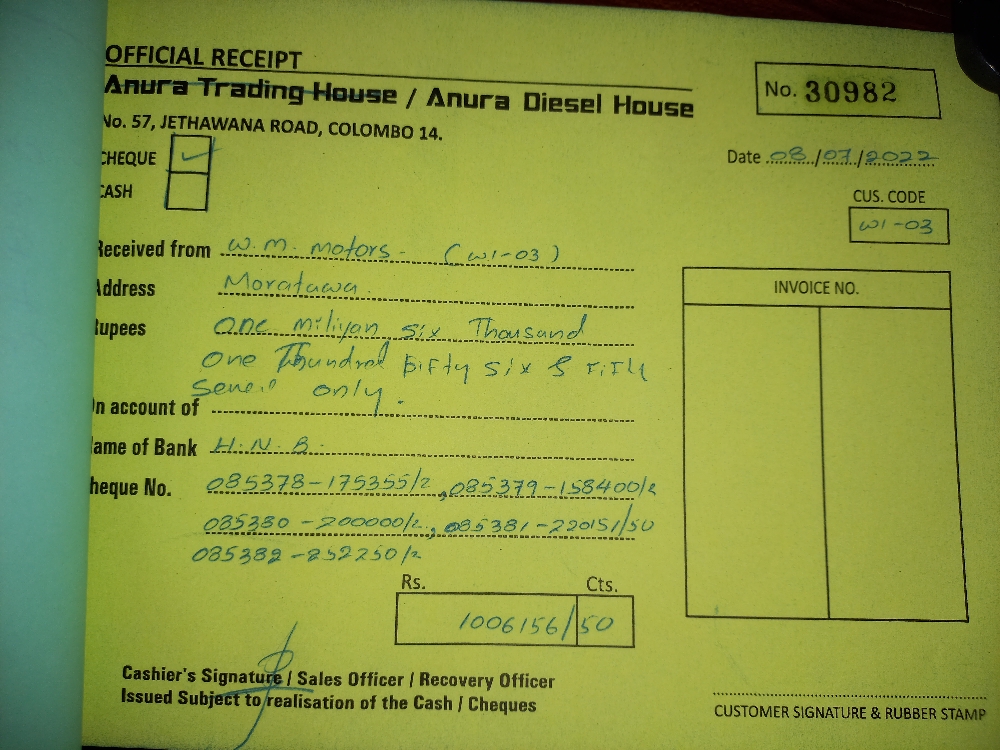 OFFICIAL RECEIPT
Anura Trading House / Anura Diesel House
No. 30982
No. 57, JETHAWANA ROAD, COLOMBO 14.
CHEQUE ✓
Date 08/07/2022
CASH
CUS. CODE
W1-03
Received from W.M. Motors - (W1-03)
Address Moratuwa
INVOICE NO.
Rupees One miliyan six Thousand
One Hundred Fifty six &
only.
On account of
Name of Bank H.N.B.
Cheque No. 085378-175355/2, 085379-158400/2
085380-200000/2, 085381-220151/50
085382-252250/2
Rs. Cts.
1006156/50
Cashier's Signature / Sales Officer / Recovery Officer
Issued Subject to realisation of the Cash / Cheques
CUSTOMER SIGNATURE & RUBBER STAMP